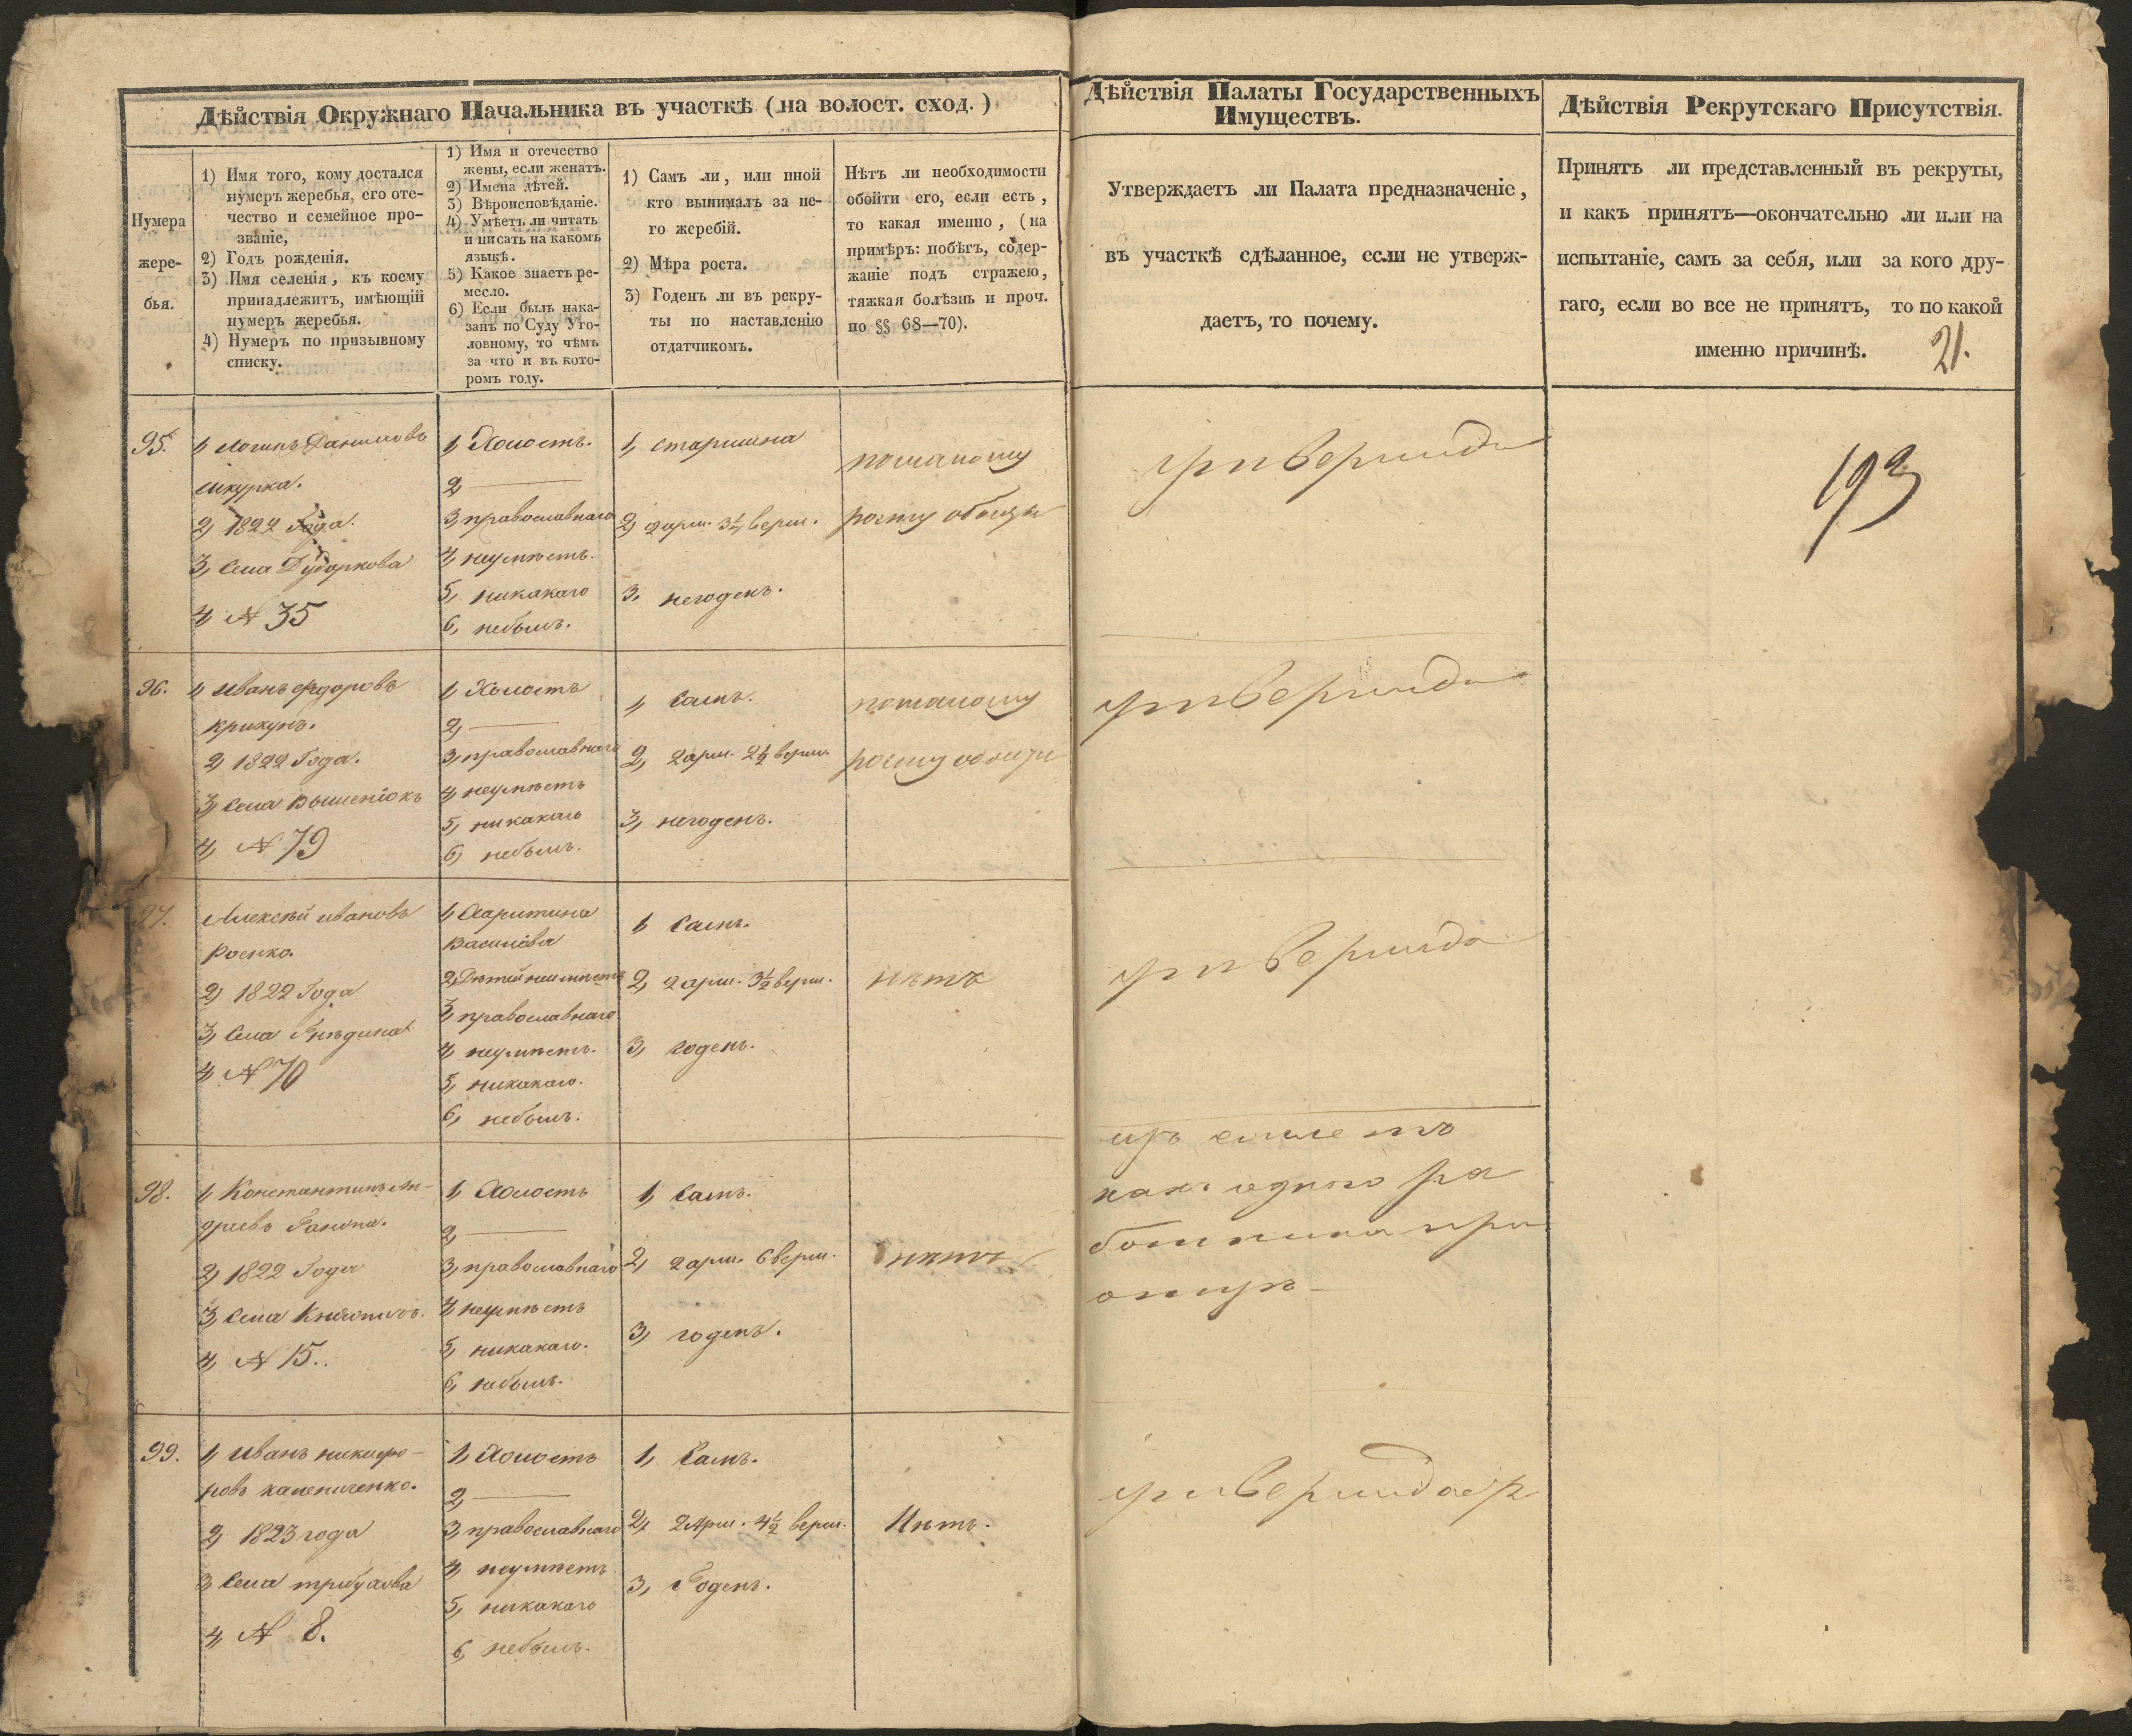 Дѣйствія Окружнаго Начальника въ участкѣ (на волост. сход.)
Нумера
жере-
бья.
1) Имя того, кому достался
нумеръ жеребья, его оте-
чество и семейное про-
званіе,
2) Годъ рожденія.
3) Имя селенія, къ коему
принадлежитъ, имѣющій
нумеръ жеребья.
4) Нумеръ по призывному
списку.
1) Имя и отечество
жены, если женатъ.
2) Имена дѣтей.
3) Вѣроисповѣданіе.
4) Умѣетъ ли читать
и писать на какомъ
языкѣ.
5) Какое знаетъ ре-
месло.
6) Если былъ нака-
занъ по Суду Уго-
ловному, то чѣмъ
за что и въ кото-
ромъ году.
1) Самъ ли, или иной
кто вынималъ за не-
го жеребій.
2) Мѣра роста.
3) Годенъ ли въ рекру-
ты по наставленію
отдатчикомъ.
Нѣтъ ли необходимости
обойти его, если есть,
то какая именно, (на
примѣръ: побѣгъ, содер-
жаніе подъ стражею,
тяжкая болѣзнь и проч.
по §§ 68—70).
Дѣйствія Палаты Государственныхъ
Имуществъ.
Утверждаетъ ли Палата предназначеніе,
въ участкѣ сдѣланное, если не утверж-
даетъ, то почему.
Дѣйствія Рекрутскаго Присутствія.
Принятъ ли представленный въ рекруты,
и какъ принятъ—окончательно ли или на
испытаніе, самъ за себя, или за кого дру-
гаго, если во все не принятъ, то по какой
именно причинѣ.
21.
193
95.
1, Логинъ Даниловъ
шкурка.
2, 1822 Года.
3, Села Дударкова
4, N 35
1, Холостъ.
2,
3, православнаго
4, неумѣетъ.
5, никакаго
6, небылъ.
1, старшина
2, 2 арш. 3½ верш.
3, негоденъ.
помалому
росту
96.
1, Иванъ Федоровъ
крикунъ.
2, 1822 Года.
3, Села Вышенокъ
4, N 79
1, Холостъ
2,
3, православнаго
4, неумѣетъ
5, никакаго
6, небылъ.
1, Самъ.
2, 2 арш. 2½ верш.
3, негоденъ.
помалому
росту
97.
Алексѣй Ивановъ
Роенко.
2, 1822 Года
3, Села Гнѣдина
4, N 70
1, Харитина
Василева
2, Дѣтей неимѣетъ
3, православнаго
4, неумѣетъ.
5, никакаго.
6, небылъ.
1, Самъ.
2, 2 арш. 3½ верш.
3, годенъ.
нѣтъ
98.
1, Константинъ Ан-
дреевъ
2, 1822 Года
3, Села Княжичъ.
4, N 15.
1, Холостъ
2,
3, православнаго
4, неумѣетъ
5, никакаго.
6, небылъ.
1, Самъ.
2, 2 арш. 6 верш.
3, годенъ.
нѣтъ
какъ одного ра
ботника
99.
1, Иванъ никифо-
ровъ
2, 1823 года
3, Села трибухова
4, N 8.
1, Холостъ
2,
3, православнаго
4, неумѣетъ
5, никакаго
6, небылъ.
1, Самъ.
2, 2 Арш. 4½ верш.
3, Годенъ.
Нѣтъ.